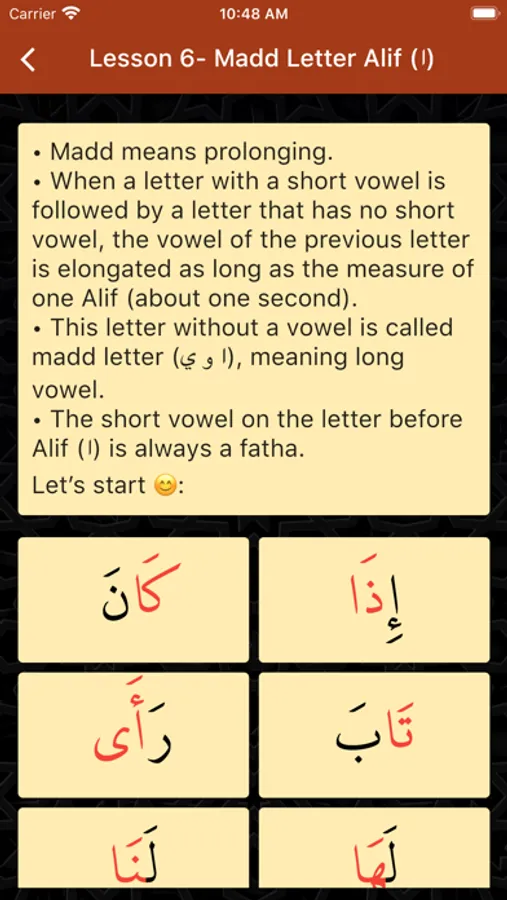 Carrier 10:48 AM
Lesson 6- Madd Letter Alif (ا)
• Madd means prolonging.
• When a letter with a short vowel is
followed by a letter that has no short
vowel, the vowel of the previous letter
is elongated as long as the measure of
one Alif (about one second).
• This letter without a vowel is called
madd letter (ا و ي), meaning long
vowel.
• The short vowel on the letter before
Alif (ا) is always a fatha.
Let’s start 😊:
إِذَا
كَانَ
تَابَ
رَأَى
لَهَا
لَنَا